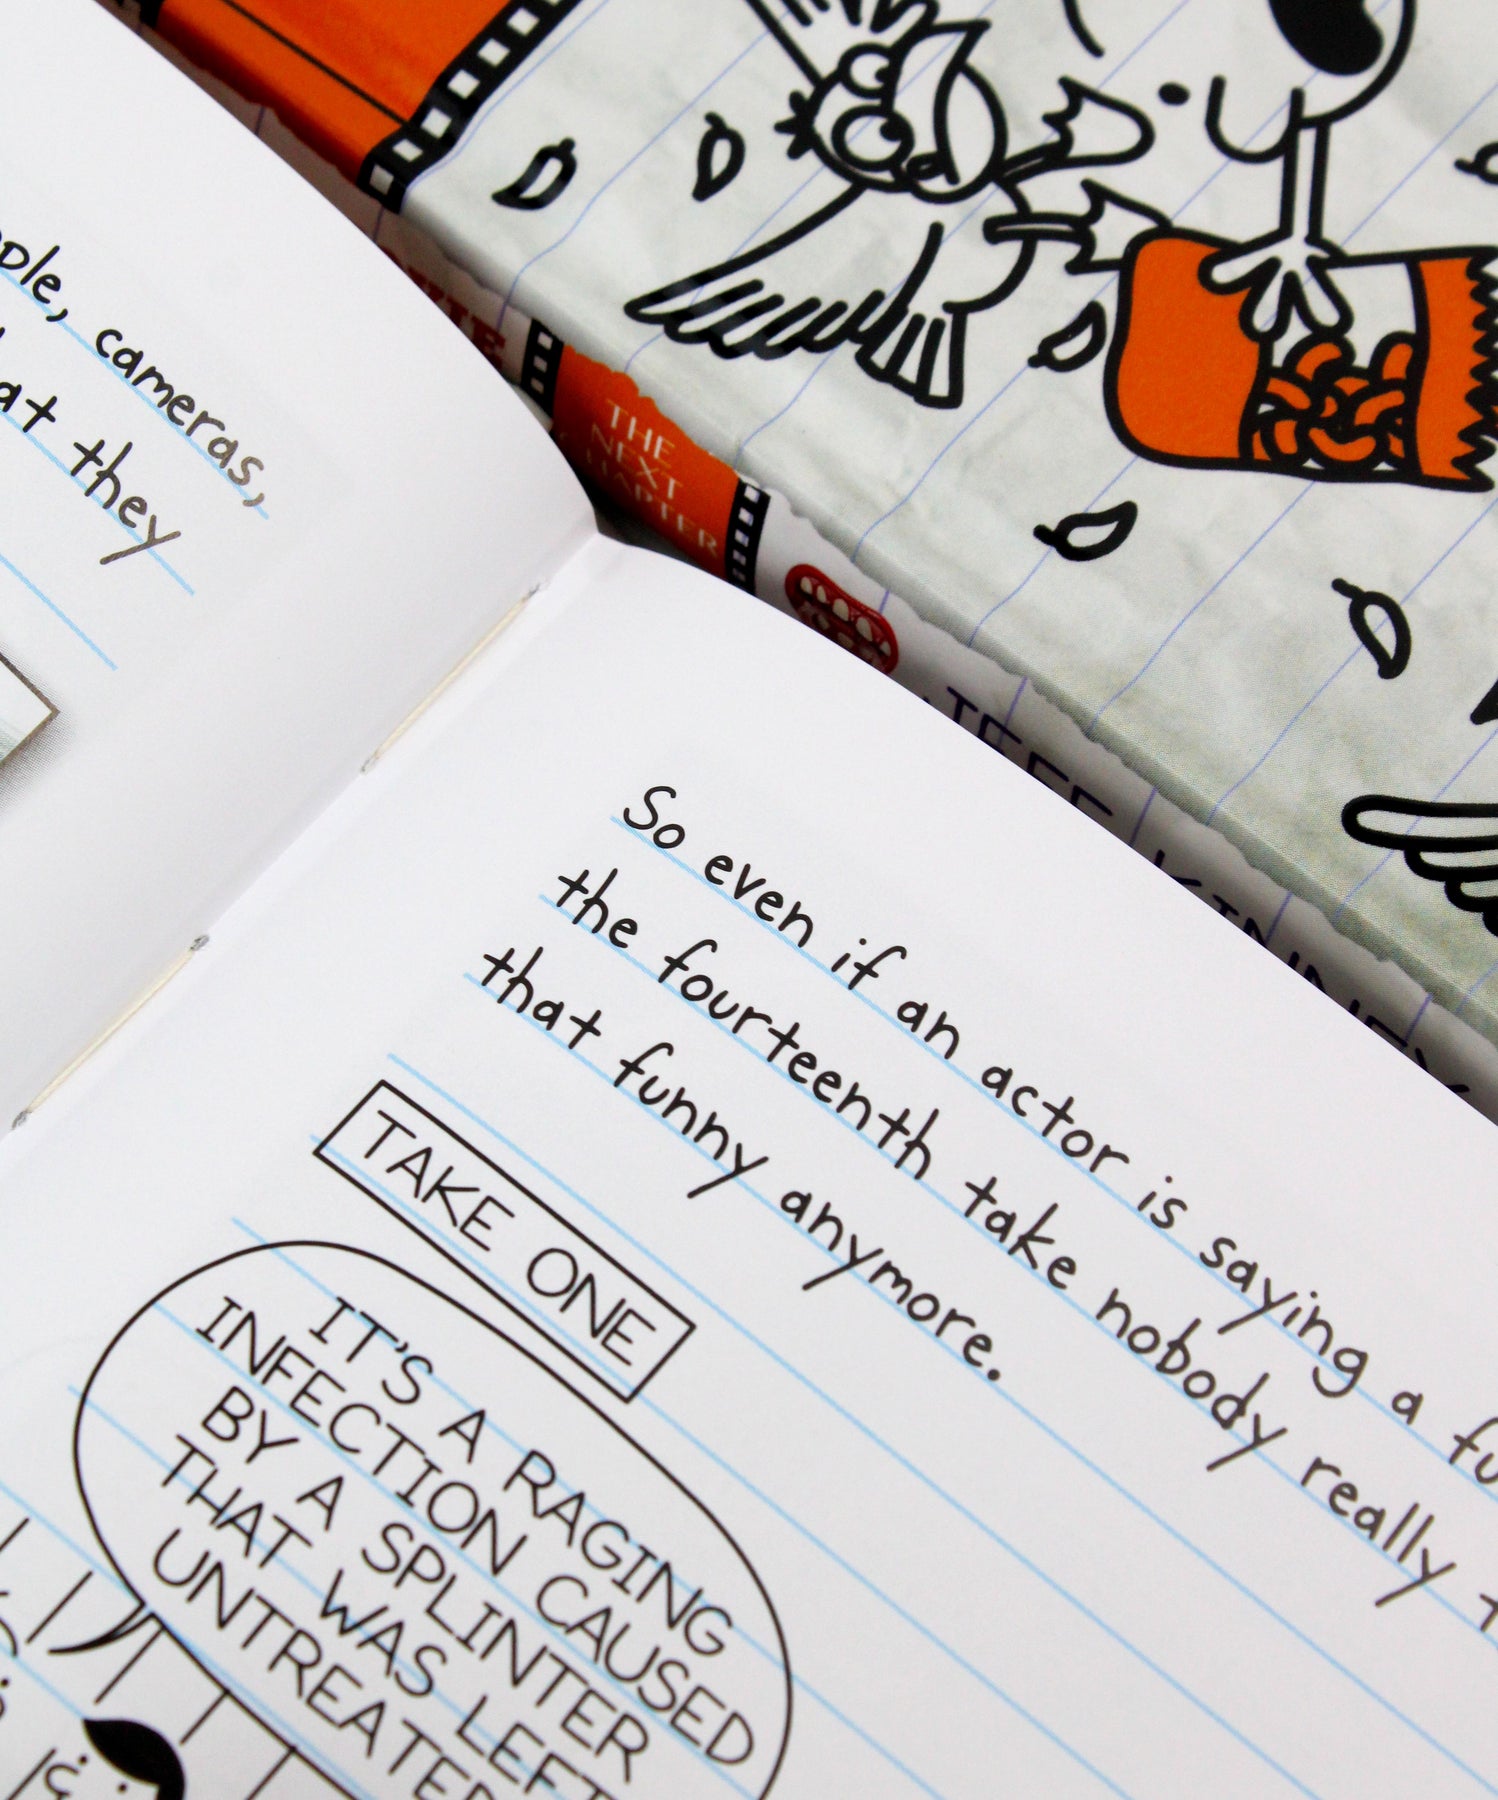 cameras,
at they
THE
NEXT
CHAPTER
JEFF KINNEY
So even if an actor is saying a
the fourteenth take nobody really
that funny anymore.
TAKE ONE
IT'S A RAGING
INFECTION CAUSED
BY A SPLINTER
THAT WAS LEFT
UNTREATED